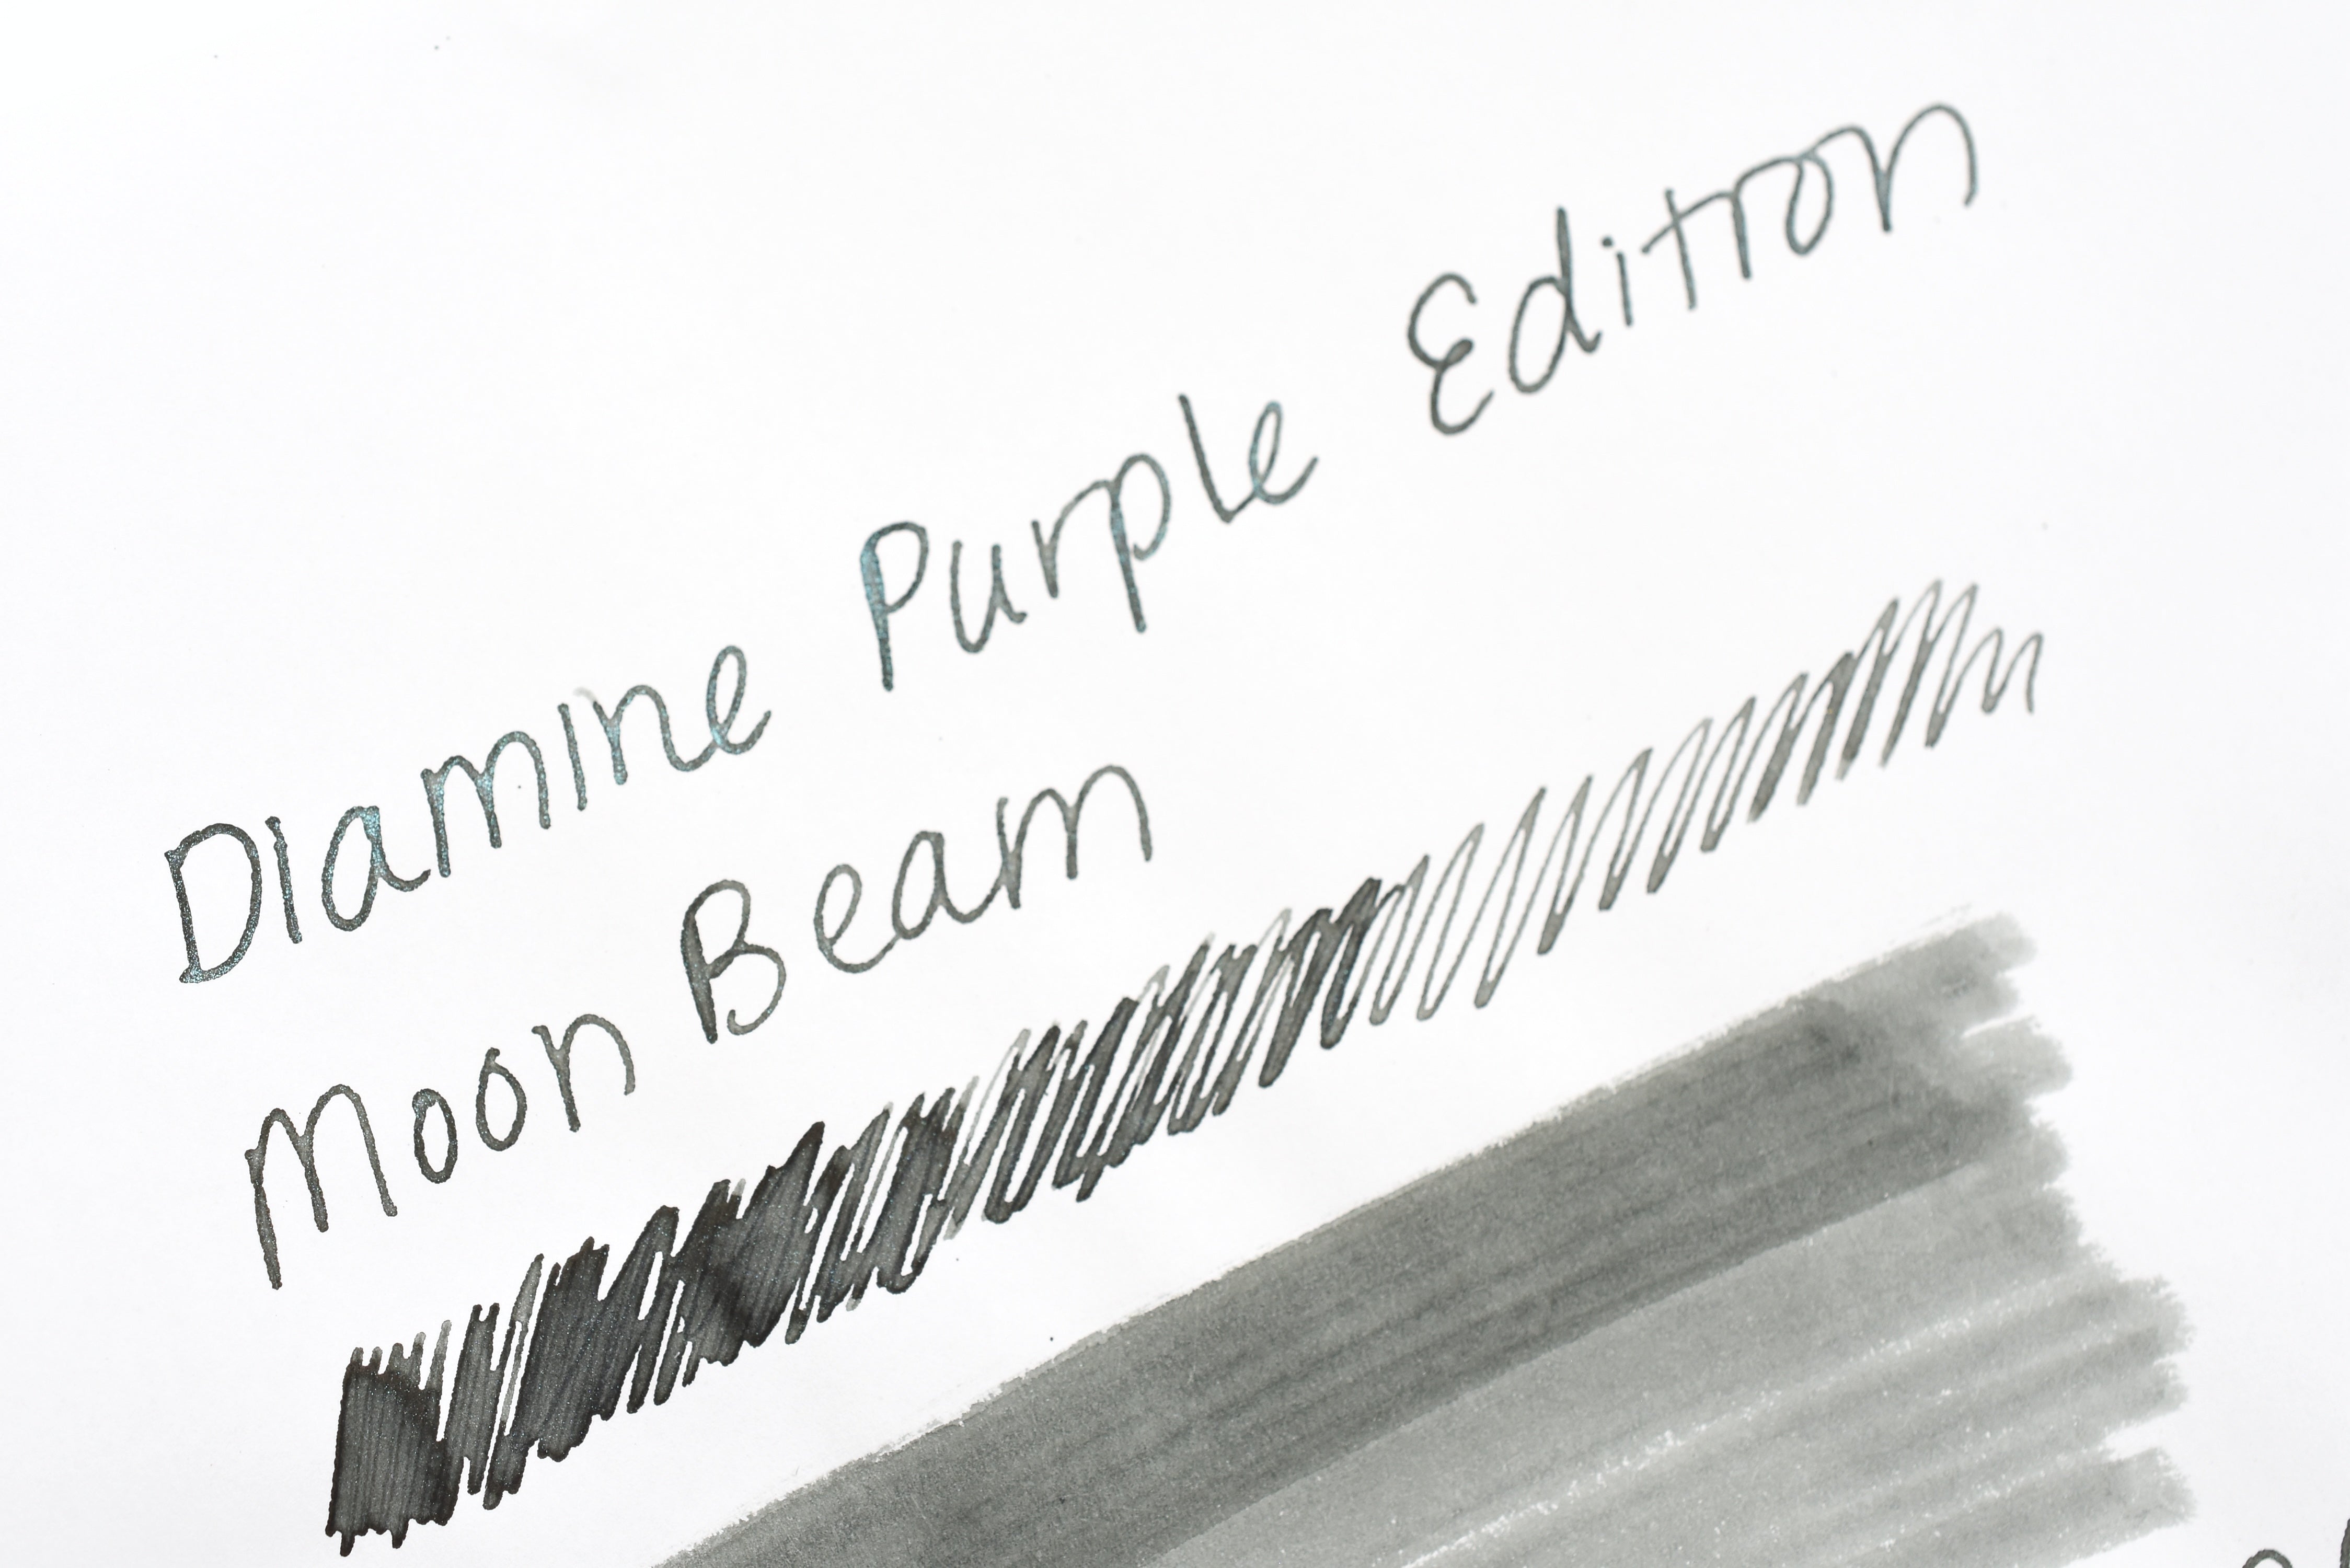 Diamine Purple Edition
Moon Beam